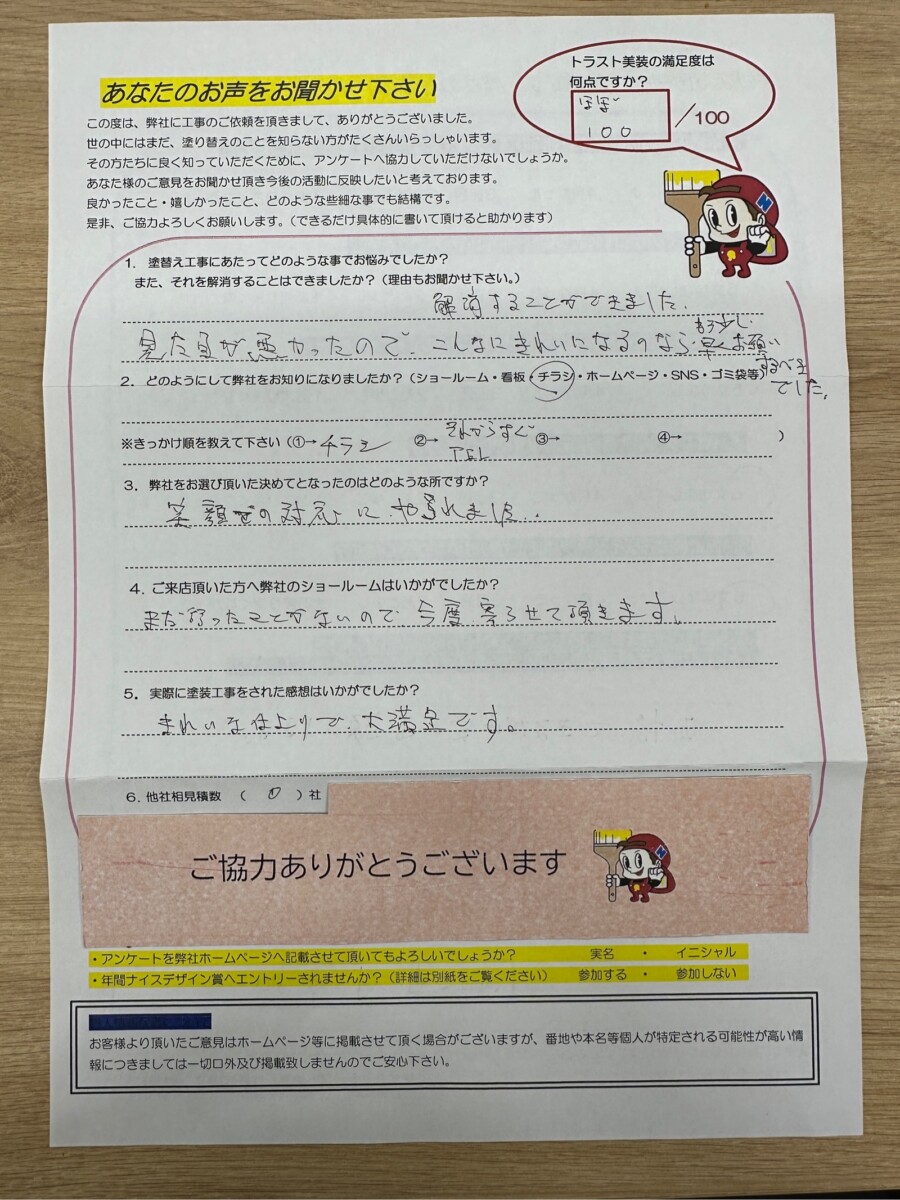 あなたのお声をお聞かせ下さい
トラスト美装の満足度は
何点ですか？
ほぼ
100
／100
この度は、弊社に工事のご依頼を頂きまして、ありがとうございました。
世の中にはまだ、塗り替えのことを知らない方がたくさんいらっしゃいます。
その方たちに良く知っていただくために、アンケートへ協力していただけないでしょうか。
あなた様のご意見をお聞かせ頂き今後の活動に反映したいと考えております。
良かったこと・嬉しかったこと、どのような些細な事でも結構です。
是非、ご協力よろしくお願いします。（できるだけ具体的に書いて頂けると助かります）
N
1．塗替え工事にあたってどのような事でお悩みでしたか？
また、それを解消することはできましたか？（理由もお聞かせ下さい。）
解消することができました。
見た目が悪かったので、こんなにきれいになるのなら もう少し 早くお願い
するべき
でした。
2．どのようにして弊社をお知りになりましたか？（ショールーム・看板・チラシ・ホームページ・SNS・ゴミ袋等）
※きっかけ順を教えて下さい（①→ チラシ ②→ それからすぐ ③→ ④→ ）
TEL
3．弊社をお選び頂いた決めてとなったのはどのような所ですか？
笑顔での対応にやられました。
4．ご来店頂いた方へ弊社のショールームはいかがでしたか？
まだ行ったことがないので、今度寄らせて頂きます。
5．実際に塗装工事をされた感想はいかがでしたか？
きれいな仕上りで、大満足です。
6．他社相見積数 （ 0 ）社
ご協力ありがとうございます
N
・アンケートを弊社ホームページへ記載させて頂いてもよろしいでしょうか？ 実名 ・ イニシャル
・年間ナイスデザイン賞へエントリーされませんか？（詳細は別紙をご覧ください） 参加する ・ 参加しない
お客様より頂いたご意見はホームページ等に掲載させて頂く場合がございますが、番地や本名等個人が特定される可能性が高い情
報につきましては一切口外及び掲載致しませんのでご安心下さい。